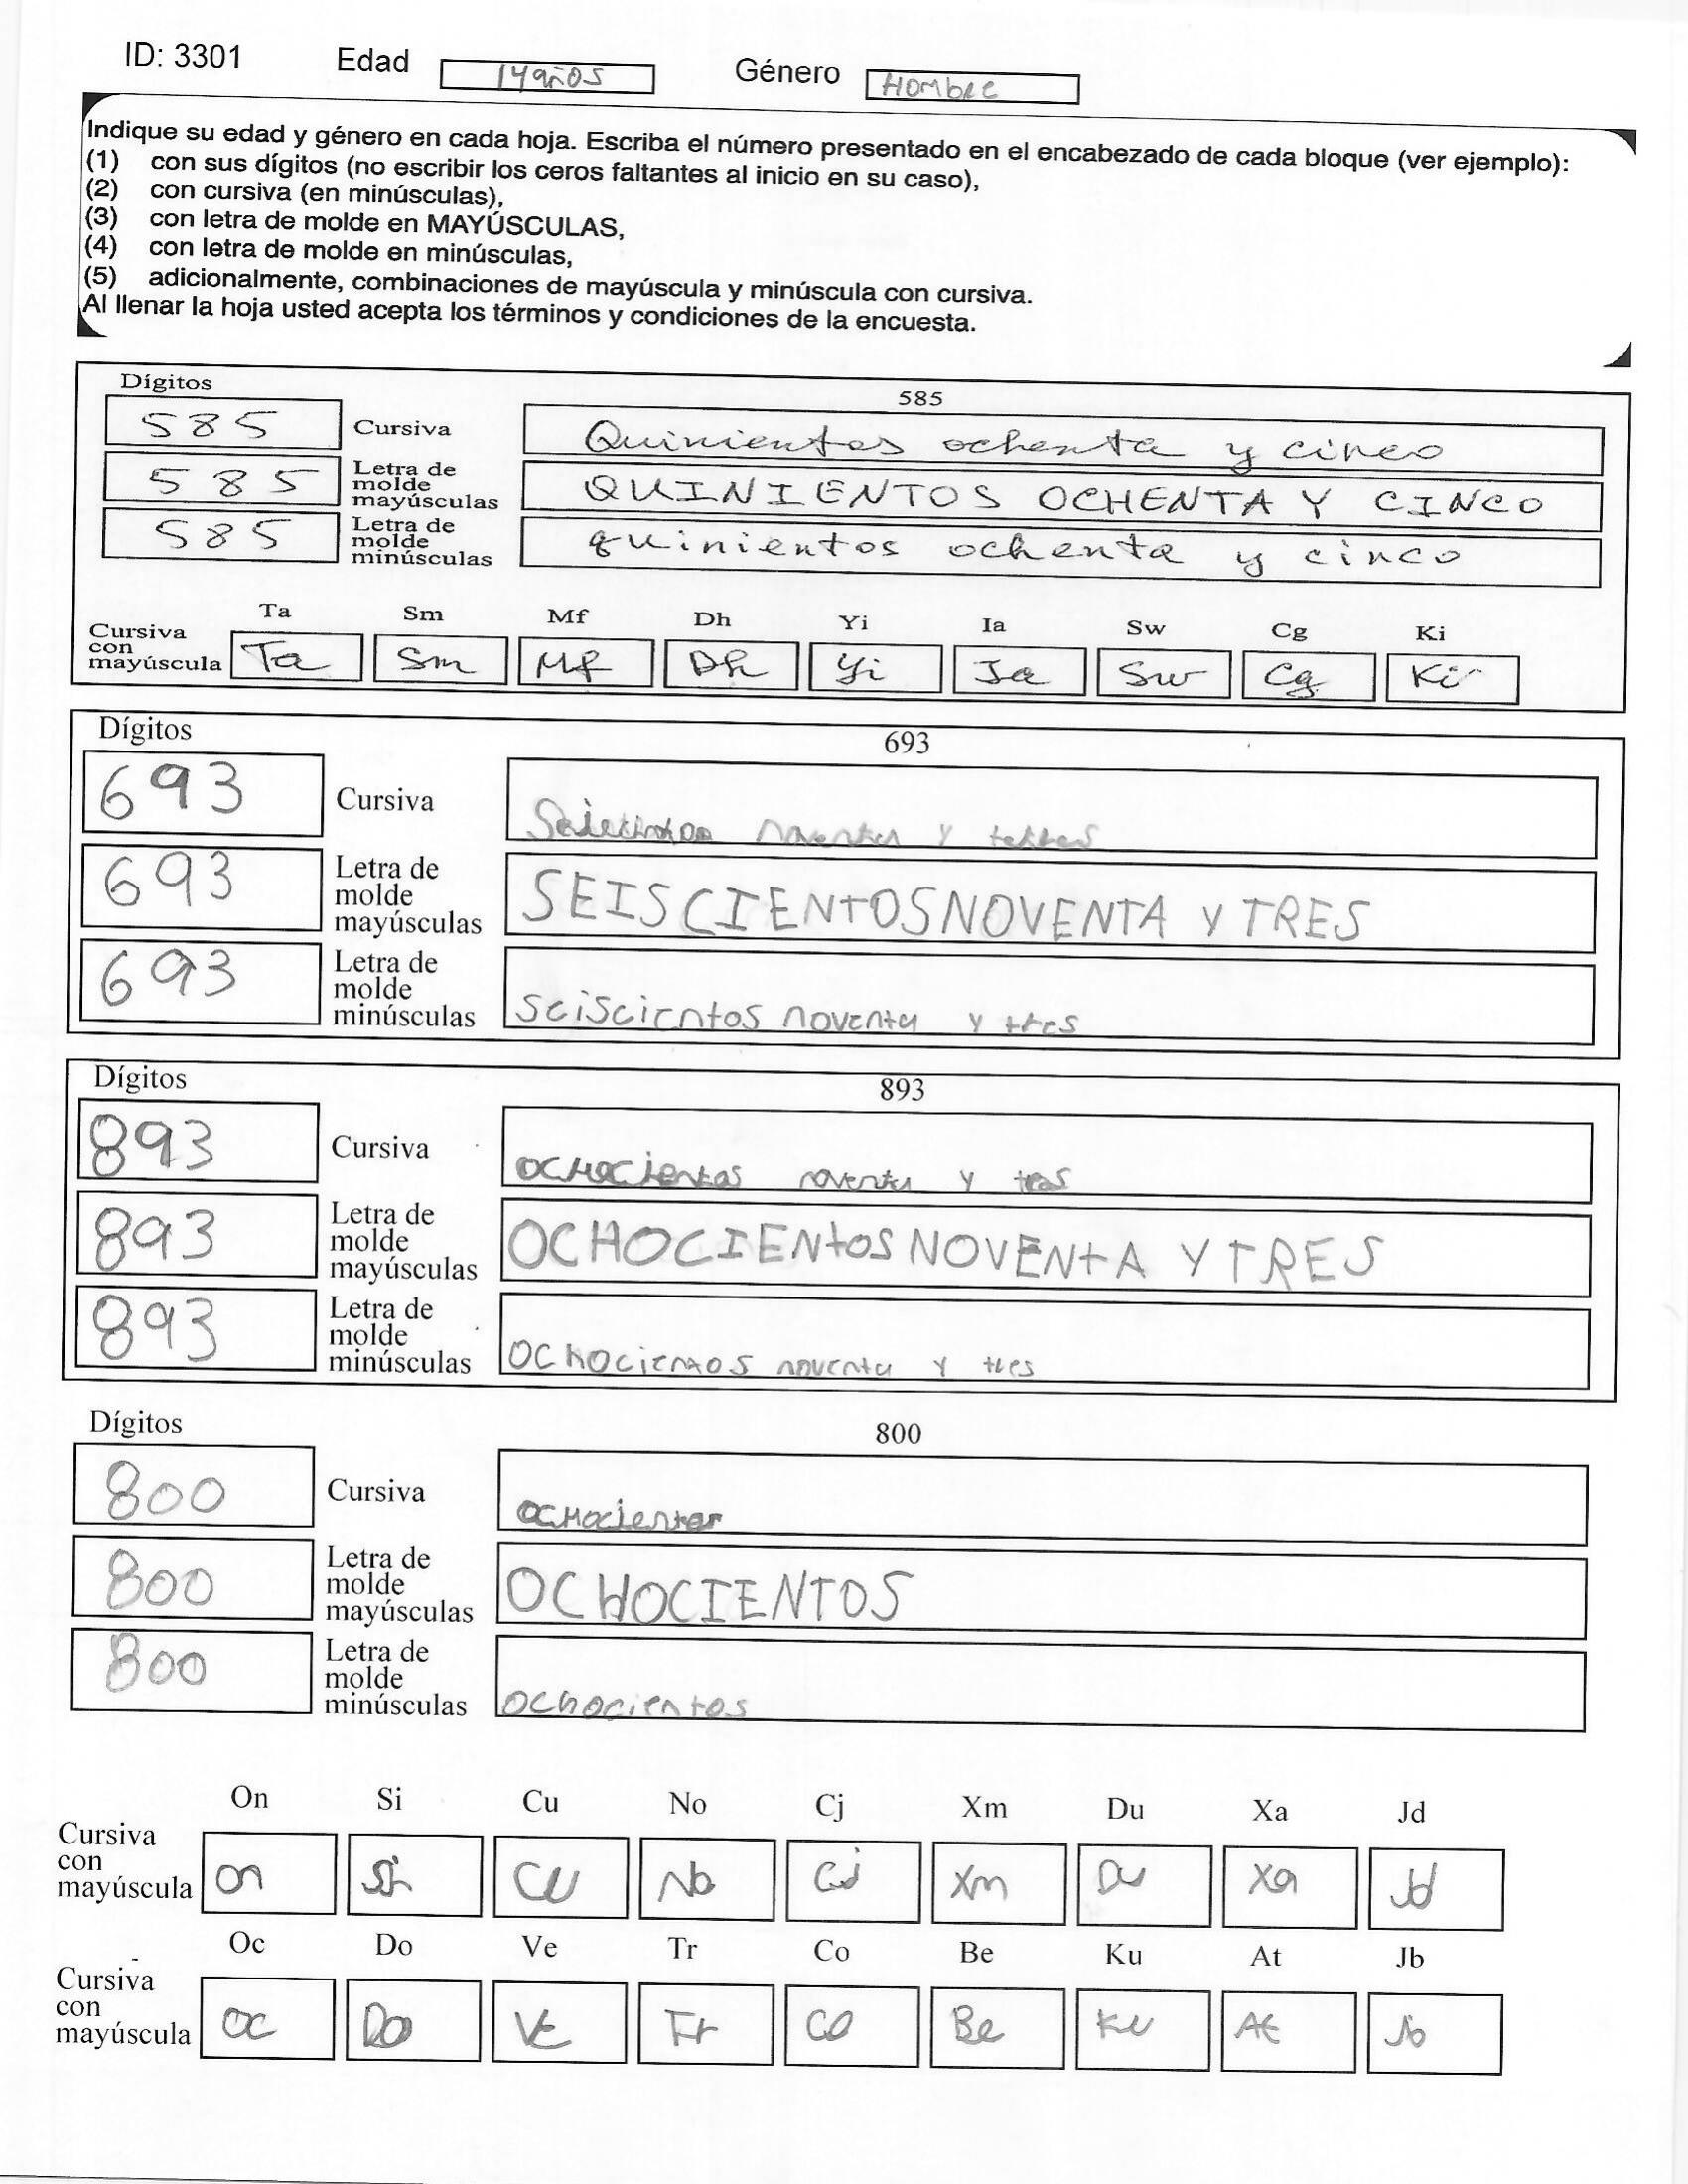 ID: 3301 Edad 14 años Género Hombre
Indique su edad y género en cada hoja. Escriba el número presentado en el encabezado de cada bloque (ver ejemplo):
(1) con sus dígitos (no escribir los ceros faltantes al inicio en su caso),
(2) con cursiva (en minúsculas),
(3) con letra de molde en MAYÚSCULAS,
(4) con letra de molde en minúsculas,
(5) adicionalmente, combinaciones de mayúscula y minúscula con cursiva.
Al llenar la hoja usted acepta los términos y condiciones de la encuesta.
Dígitos 585
585 Cursiva Quinientos ochenta y cinco
585 Letra de molde mayúsculas QUINIENTOS OCHENTA Y CINCO
585 Letra de molde minúsculas quinientos ochenta y cinco
Ta Sm Mf Dh Yi Ia Sw Cg Ki
Cursiva con mayúscula Ta Sm Mf Dh Yi Ia Sw Cg Ki
Dígitos 693
693 Cursiva noventa y
693 Letra de molde mayúsculas SEISCIENTOS NOVENTA Y TRES
693 Letra de molde minúsculas seiscientos noventa y tres
Dígitos 893
893 Cursiva ochocientos noventa y tres
893 Letra de molde mayúsculas OCHOCIENtOS NOVENtA Y TRES
893 Letra de molde minúsculas ochocientos noventa y tres
Dígitos 800
800 Cursiva ochocientos
800 Letra de molde mayúsculas OCHOCIENTOS
800 Letra de molde minúsculas ochocientos
On Si Cu No Cj Xm Du Xa Jd
Cursiva con mayúscula On Si Cu No Cj Xm Du Xa Jd
Oc Do Ve Tr Co Be Ku At Jb
Cursiva con mayúscula Oc Do Ve Tr Co Be Ku At Jb